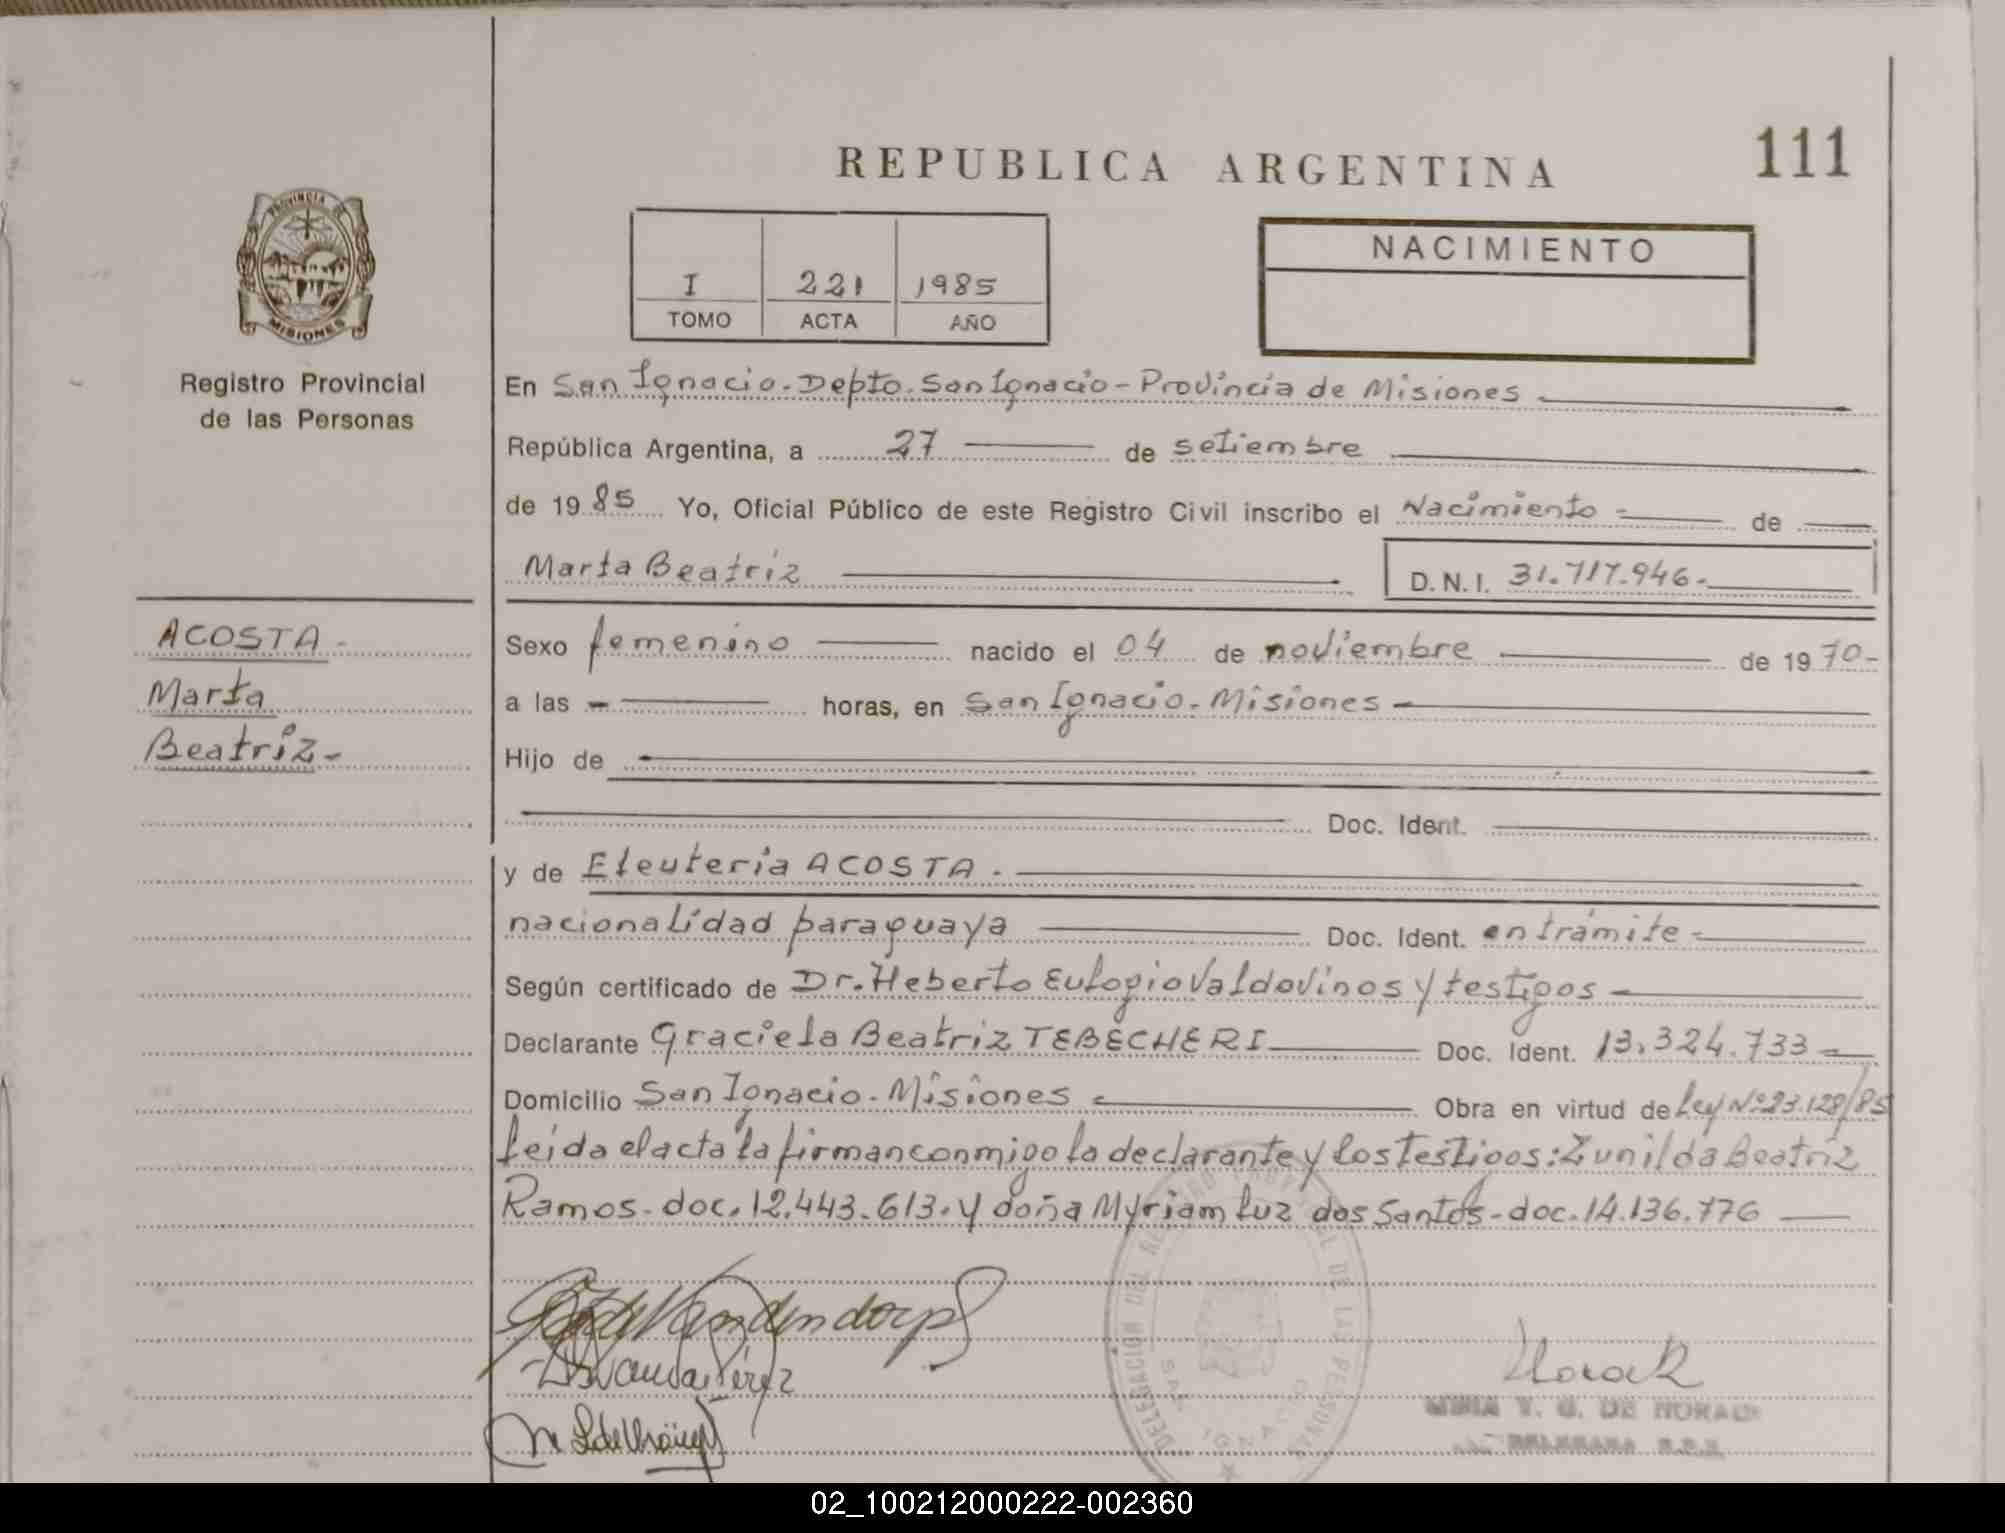 111
REPUBLICA ARGENTINA
PROVINCIA DE
MISIONES
Registro Provincial
de las Personas
I 221 1985
TOMO ACTA AÑO
NACIMIENTO
En San Ignacio. Depto. San Ignacio - Provincia de Misiones
República Argentina, a 27 de setiembre
de 1985 Yo, Oficial Público de este Registro Civil inscribo el Nacimiento - de
Marta Beatriz D.N.I. 31.717.946.
ACOSTA -
Marta
Beatriz -
Sexo femenino nacido el 04 de noviembre de 1970-
a las - horas, en San Ignacio. Misiones -
Hijo de
Doc. Ident.
y de Eleuteria ACOSTA.
nacionalidad paraguaya Doc. Ident. en trámite -
Según certificado de Dr. Heberto Eulogio Valdovinos y testigos -
Declarante Graciela Beatriz TEBECHERI Doc. Ident. 13.324.733 -
Domicilio San Ignacio. Misiones - Obra en virtud de Ley Nº 23.128/85
leída el acta la firman conmigo la declarante y los testigos: Zunilda Beatriz
Ramos - doc. 12.443.613. y doña Myriam Luz dos Santos - doc. 14.136.776
DELEGACIÓN DEL REGISTRO PROVINCIAL DE LAS PERSONAS
SAN IGNACIO
Y. G. DE HORAK
02_100212000222-002360